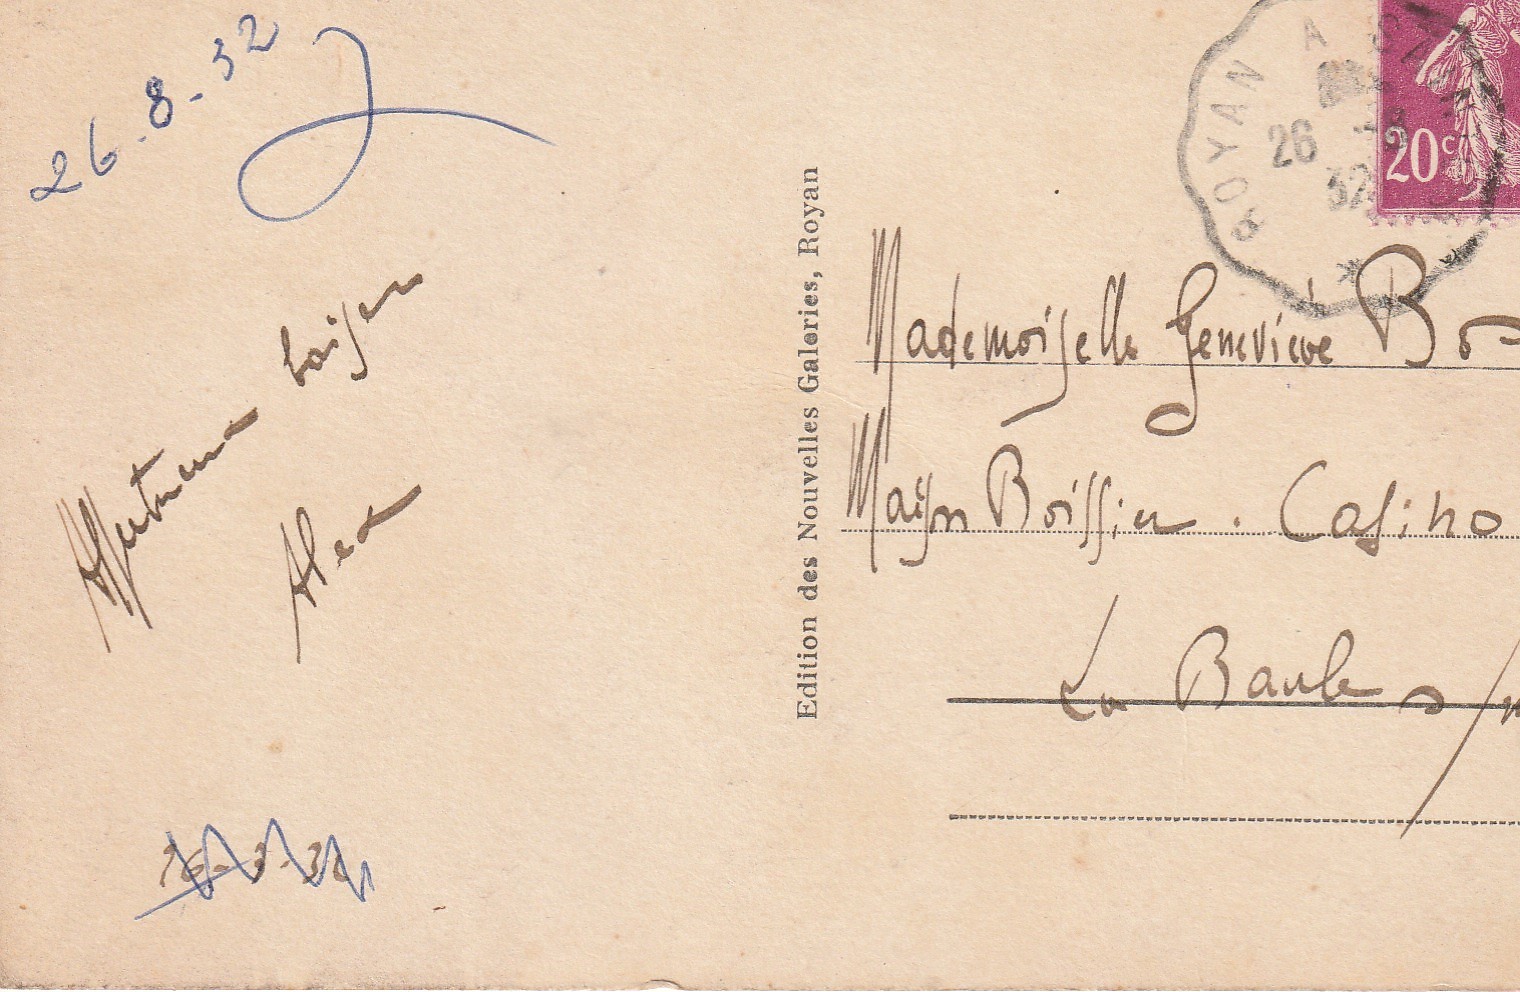 26-8-32
Affectueux baisers
Alex
26-8-32
Edition des Nouvelles Galeries, Royan
ROYAN A
26 -8
32
20c
Mademoiselle Geneviève Bo
Maison Boissier. Casino
La Baule s/